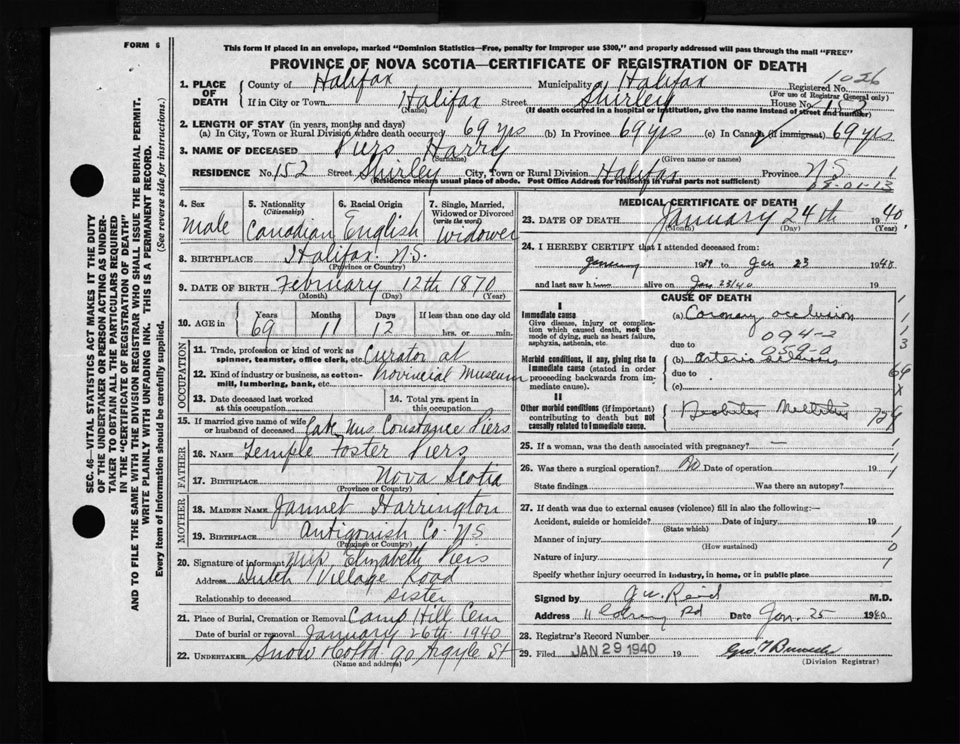 FORM 6
This form if placed in an envelope, marked "Dominion Statistics—Free, penalty for improper use $300," and properly addressed will pass through the mail "FREE"
PROVINCE OF NOVA SCOTIA—CERTIFICATE OF REGISTRATION OF DEATH
SEC. 46—VITAL STATISTICS ACT MAKES IT THE DUTY
OF THE UNDERTAKER OR PERSON ACTING AS UNDER-
TAKER TO OBTAIN ALL THE PARTICULARS REQUIRED
IN THE "CERTIFICATE OF REGISTRATION OF DEATH"
AND TO FILE THE SAME WITH THE DIVISION REGISTRAR WHO SHALL ISSUE THE BURIAL PERMIT.
WRITE PLAINLY WITH UNFADING INK. THIS IS A PERMANENT RECORD.
Every item of Information should be carefully supplied. (See reverse side for instructions.)
1. PLACE OF DEATH County of Halifax Municipality of Halifax Registered No. 1026
(For use of Registrar General only)
If in City or Town Halifax Street Shirley House No. 152
(Name) (If death occurred in a hospital or institution, give the name instead of street and number)
2. LENGTH OF STAY (in years, months and days)
(a) In City, Town or Rural Division where death occurred 69 yrs (b) In Province 69 yrs (c) In Canada (if immigrant) 69 yrs
3. NAME OF DECEASED Piers Harry
(Surname) (Given name or names)
RESIDENCE No. 152 Street Shirley City, Town or Rural Division Halifax Province N.S.
(Residence means usual place of abode. Post Office Address for residents in rural parts not sufficient)
4. Sex Male
5. Nationality (Citizenship) Canadian
6. Racial Origin English
7. Single, Married, Widowed or Divorced (write the word) Widower
8. BIRTHPLACE Halifax N.S.
(Province or Country)
9. DATE OF BIRTH February 12th 1870
(Month) (Day) (Year)
10. AGE in Years 69 Months 11 Days 12 If less than one day old hrs. or min.
OCCUPATION
11. Trade, profession or kind of work as spinner, teamster, office clerk, etc. Curator at
12. Kind of industry or business, as cotton-mill, lumbering, bank, etc. Provincial Museum
13. Date deceased last worked at this occupation
14. Total yrs. spent in this occupation
15. If married give name of wife or husband of deceased Late Mrs Constance Piers
FATHER
16. NAME Temple Foster Piers
17. BIRTHPLACE Nova Scotia
(Province or Country)
MOTHER
18. MAIDEN NAME Jannet Harrington
19. BIRTHPLACE Antigonish Co N S
(Province or Country)
20. Signature of informant Elizabeth Piers
Address Dutch Village Road
Relationship to deceased sister
21. Place of Burial, Cremation or Removal Camp Hill Cem
Date of burial or removal January 26th 1940
22. UNDERTAKER Snow & Co Ltd 90 Argyle St
(Name and address)
MEDICAL CERTIFICATE OF DEATH
23. DATE OF DEATH January 24th 1940
(Month) (Day) (Year)
24. I HEREBY CERTIFY that I attended deceased from:
January 1939 to Jan 23 1940
and last saw h alive on Jan 23/40
CAUSE OF DEATH
I
Immediate cause
Give disease, injury or complication which caused death, not the mode of dying, such as heart failure, asphyxia, asthenia, etc.
(a) Coronary occlusion
094-2
due to
Morbid conditions, if any, giving rise to Immediate cause (stated in order proceeding backwards from immediate cause).
(b) arterio sclerosis
due to
(c)
II
Other morbid conditions (if important) contributing to death but not causally related to immediate cause.
Diabetes Mellitus
25. If a woman, was the death associated with pregnancy? —
26. Was there a surgical operation? No Date of operation 19
State findings Was there an autopsy?
27. If death was due to external causes (violence) fill in also the following:—
Accident, suicide or homicide? Date of injury 19
(State which)
Manner of injury
(How sustained)
Nature of injury
Specify whether injury occurred in industry, in home, or in public place
Signed by J W Reid M.D.
Address 11 Rd Date Jan. 25 1940
28. Registrar's Record Number
29. Filed JAN 29 1940 19
(Division Registrar)